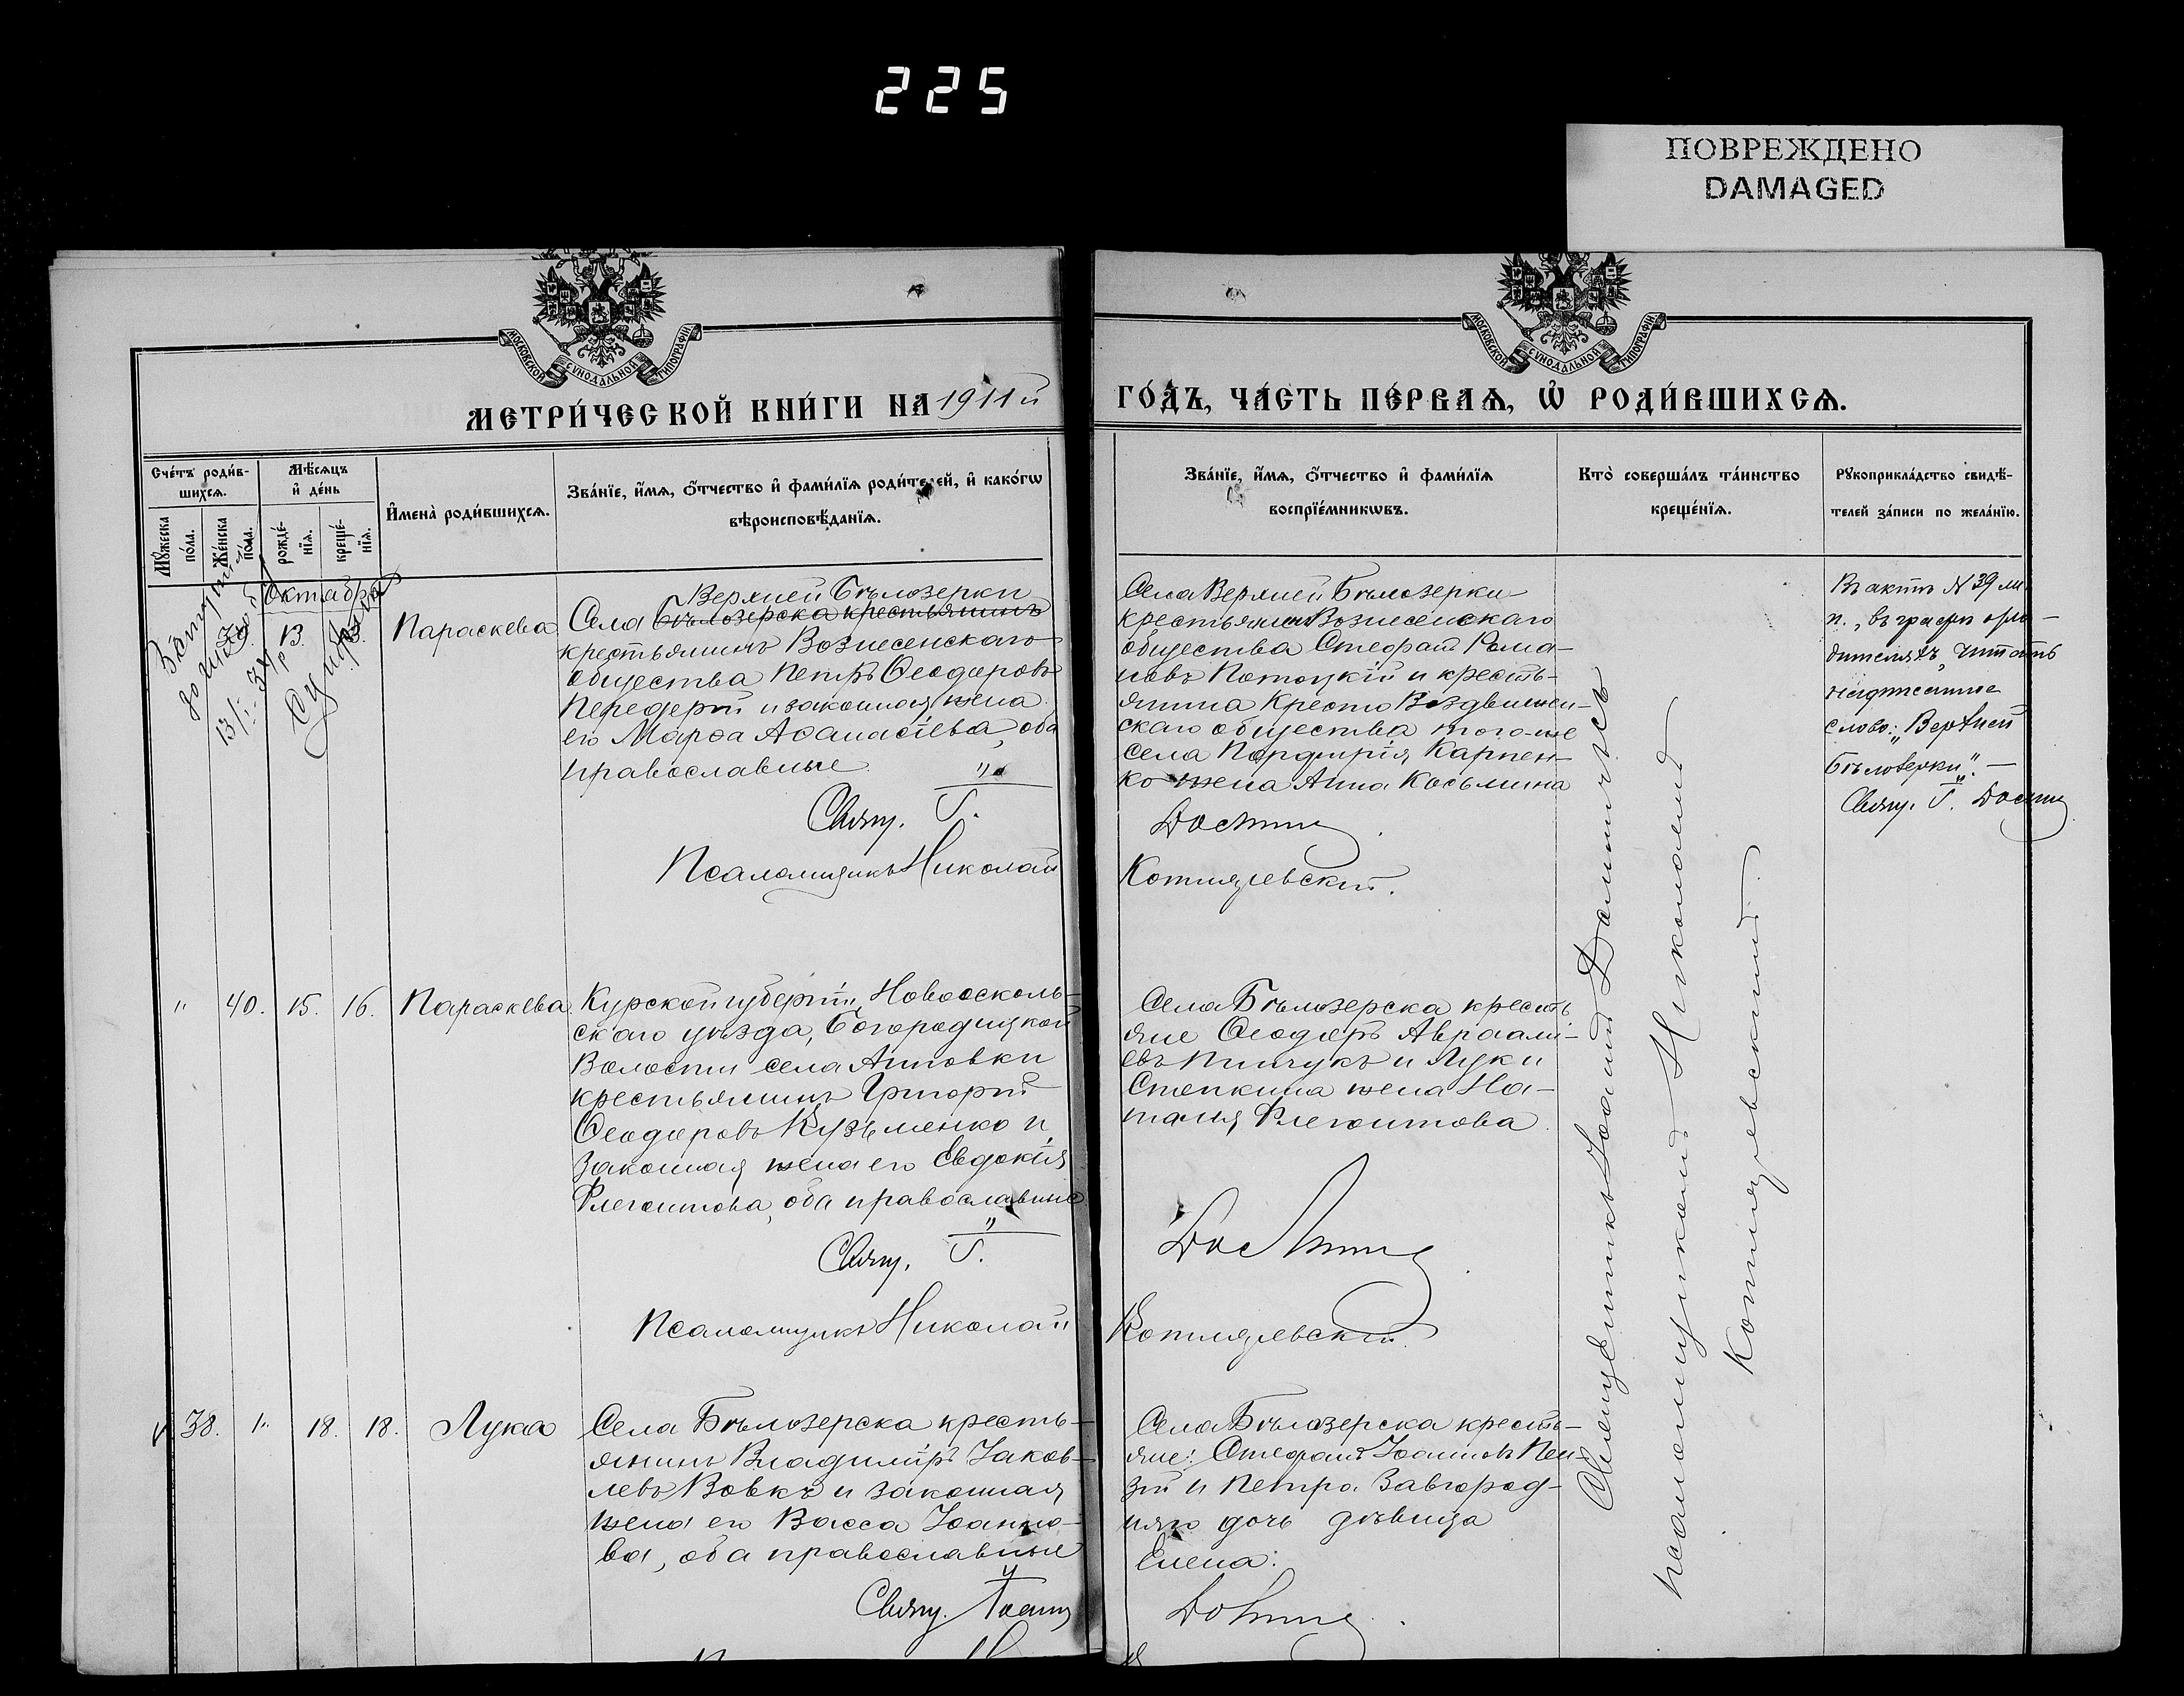 225
ПОВРЕЖДЕНО
DAMAGED
МОСКОВСКОЙ СѴНОДАЛЬНОЙ ТИПОГРАФІИ
МОСКОВСКОЙ СѴНОДАЛЬНОЙ ТИПОГРАФІИ
МЕТРИ́ЧЕСКОЙ КНИ́ГИ НА 1911й
ГО́ДЪ, ЧА́СТЬ ПЕ́РВАѦ, Ѡ҆ РОДИ́ВШИХСѦ.
Сче́тъ роди́в-
шихсѧ.
Мꙋ́жеска
по́ла.
Же́нска
по́ла.
Мѣ́сѧцъ
и҆ де́нь
рожде́-
нїѧ.
креще́-
нїѧ.
И҆мена̀ роди́вшихсѧ.
Зва́нїе, и҆́мѧ, ѻ҆́тчество и҆ фами́лїѧ роди́телей, и҆ како́гѡ
вѣроисповѣ́данїѧ.
Зва́нїе, и҆́мѧ, ѻ҆́тчество и҆ фами́лїѧ
воспрїе́мникѡвъ.
Кто̀ соверша́лъ та́инство
креще́нїѧ.
Рꙋкоприкла́дство свидѣ́-
телей за́писи по жела́нїю.
Октябрь
39 13. 13. Параскева
Верхней Бѣлозерки
Села Бѣлозерска крестьянинъ
крестьянинъ Вознесенскаго
общества Петръ Ѳеодоровъ
Передерій и законная жена
его Марѳа Аѳанасіева, оба
православные
Свящ. І.
Псаломщикъ Николай
Села Верхней Бѣлозерки
крестьянин Вознесенскаго
общества Стефанъ Рома-
новъ Потоцкій и кресть-
янина Кресто Воздвижен-
скаго общества того-же
села Порфирія Карпен-
ко жена Анна Косьмина
Котляревскій.
Въ актѣ № 39 ж.
п., въ графѣ о ро-
дителяхъ, читать
надписанное
слово: „Верхней
Бѣлозерки". —
Свящ. І.
" 40. 15. 16. Параскева
Курской губерніи, Новоосколь-
скаго уѣзда, Богородицкой
Волости села Анновки
крестьянинъ Григорій
Ѳеодоровъ Кузьменко и
законная жена его Евдокія
Флегонтова, оба православные
Свящ. І.
Псаломщикъ Николай
Села Бѣлозерска кресть
яне Ѳеодоръ Авраамі-
евъ Пинчукъ и Луки
Степкина жена На-
талія Флегонтова.
Котляревскій.
Священникъ Іоаннъ
псаломщикомъ Николаемъ
Котляревскимъ.
38. " 18. 18. Лука
Села Бѣлозерска кресть-
янинъ Владиміръ Іаков-
левъ Вовкъ и законная
жена его Васса Іоанно-
ва, оба православные
Свящ. Іоаннъ
Села Бѣлозерска кресть-
яне: Стефанъ Іоанновъ Пен-
зій и Петра Завгород-
няго дочь дѣвица
Елена: